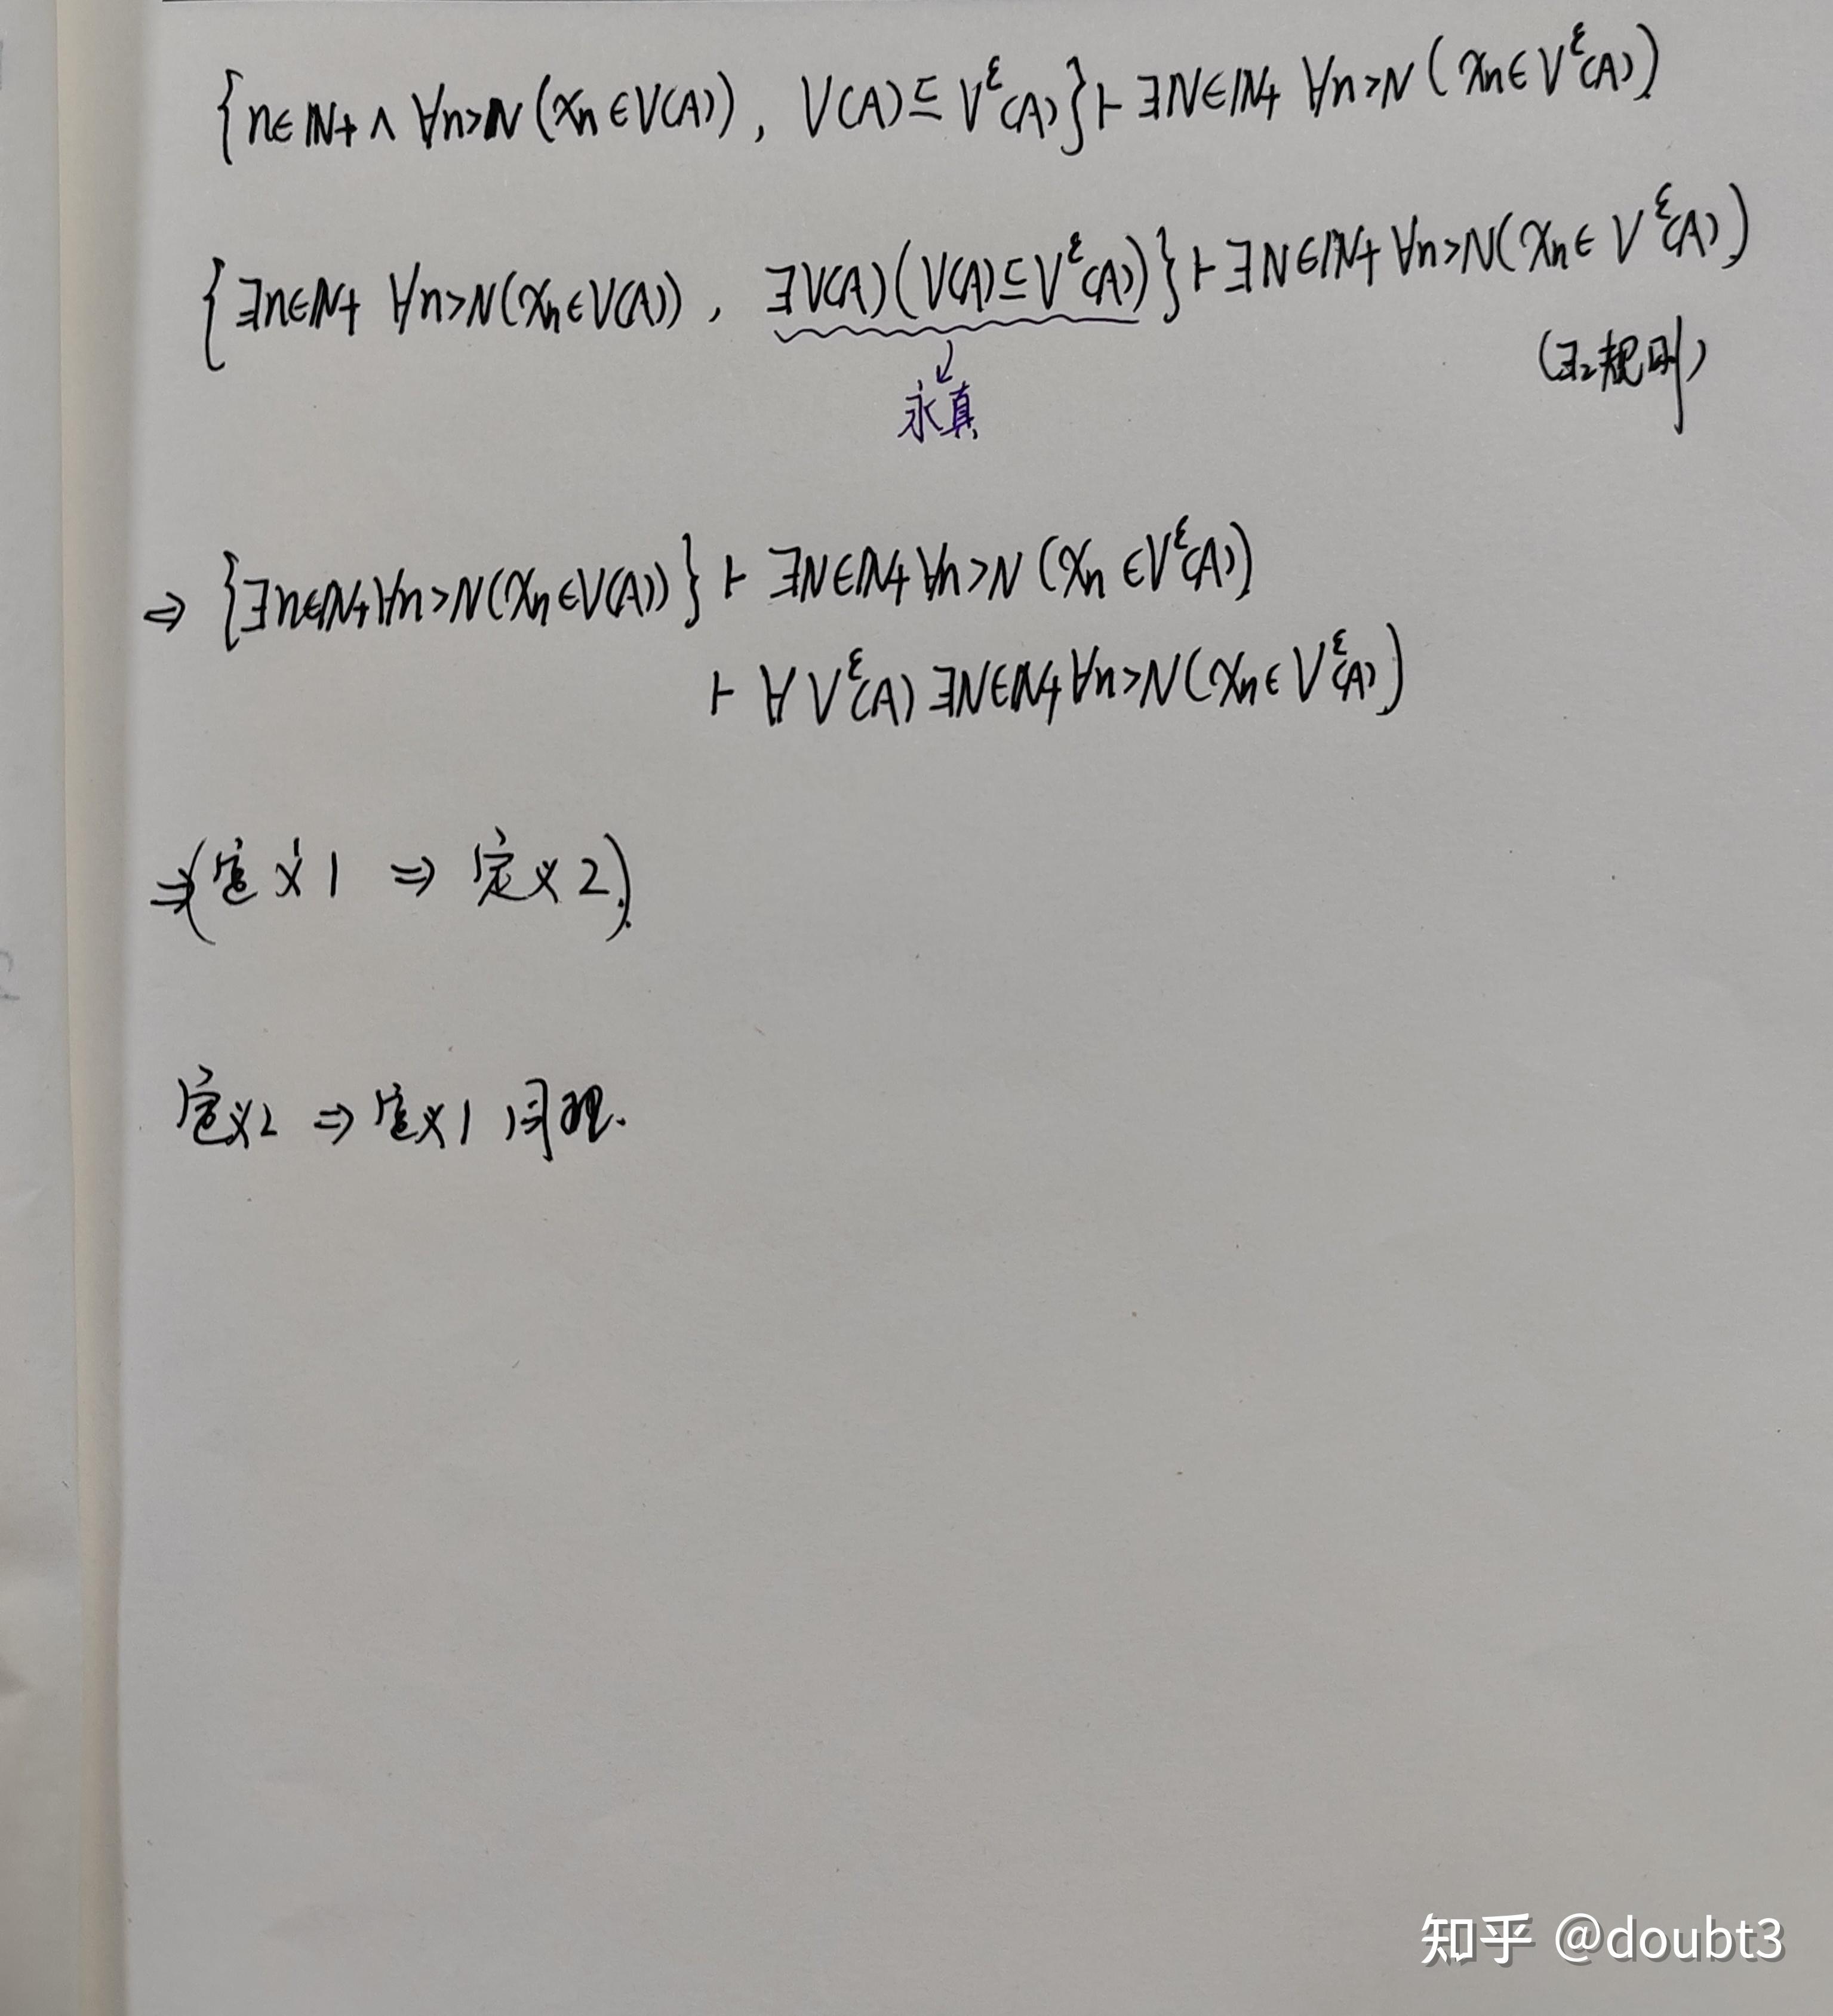 {n∈ℕ+ ∧ ∀n>N(xn∈V(A)), V(A)⊆V^ε(A)}⊢∃N∈ℕ+ ∀n>N(xn∈V^ε(A))
{∃n∈ℕ+ ∀n>N(xn∈V(A)), ∃V(A)(V(A)⊆V^ε(A))}⊢∃N∈ℕ+ ∀n>N(xn∈V^ε(A))
(∃₂规则)
永真
⇒ {∃n∈ℕ+ ∀n>N(xn∈V(A))} ⊢ ∃N∈ℕ+ ∀n>N(xn∈V^ε(A))
⊢ ∀V^ε(A) ∃N∈ℕ+ ∀n>N(xn∈V^ε(A))
⇒(定义1 ⇒ 定义2).
定义2 ⇒ 定义1 同理.
知乎 @doubt3